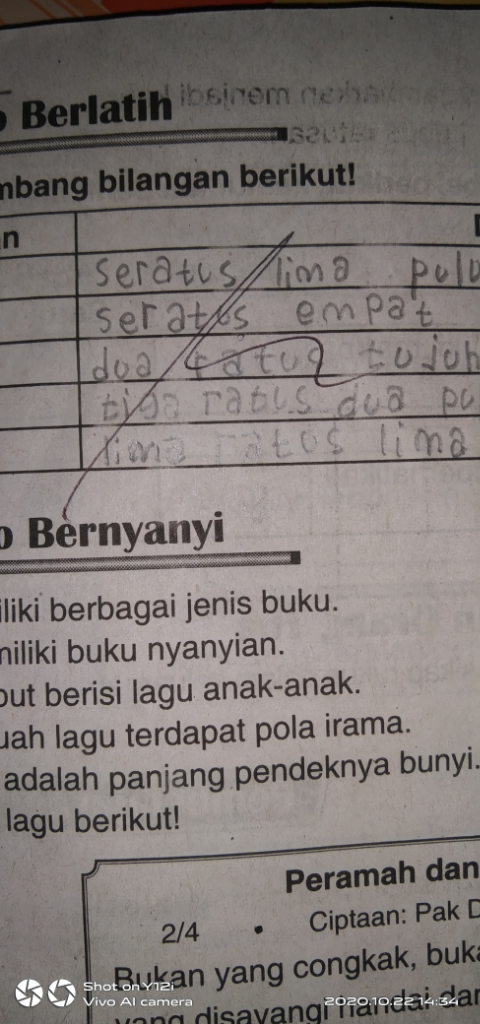 o Berlatih
mbang bilangan berikut!
n
seratus lima pulu
seratus empat
dua ratus tujuh
tiga ratus dua pu
lima ratus lima
o Bernyanyi
iliki berbagai jenis buku.
niliki buku nyanyian.
but berisi lagu anak-anak.
uah lagu terdapat pola irama.
adalah panjang pendeknya bunyi.
lagu berikut!
Peramah dan
2/4 • Ciptaan: Pak D
Bukan yang congkak, buka
yang disayangi handai dan
Shot on Y12i
Vivo AI camera
2020.10.22 14:34